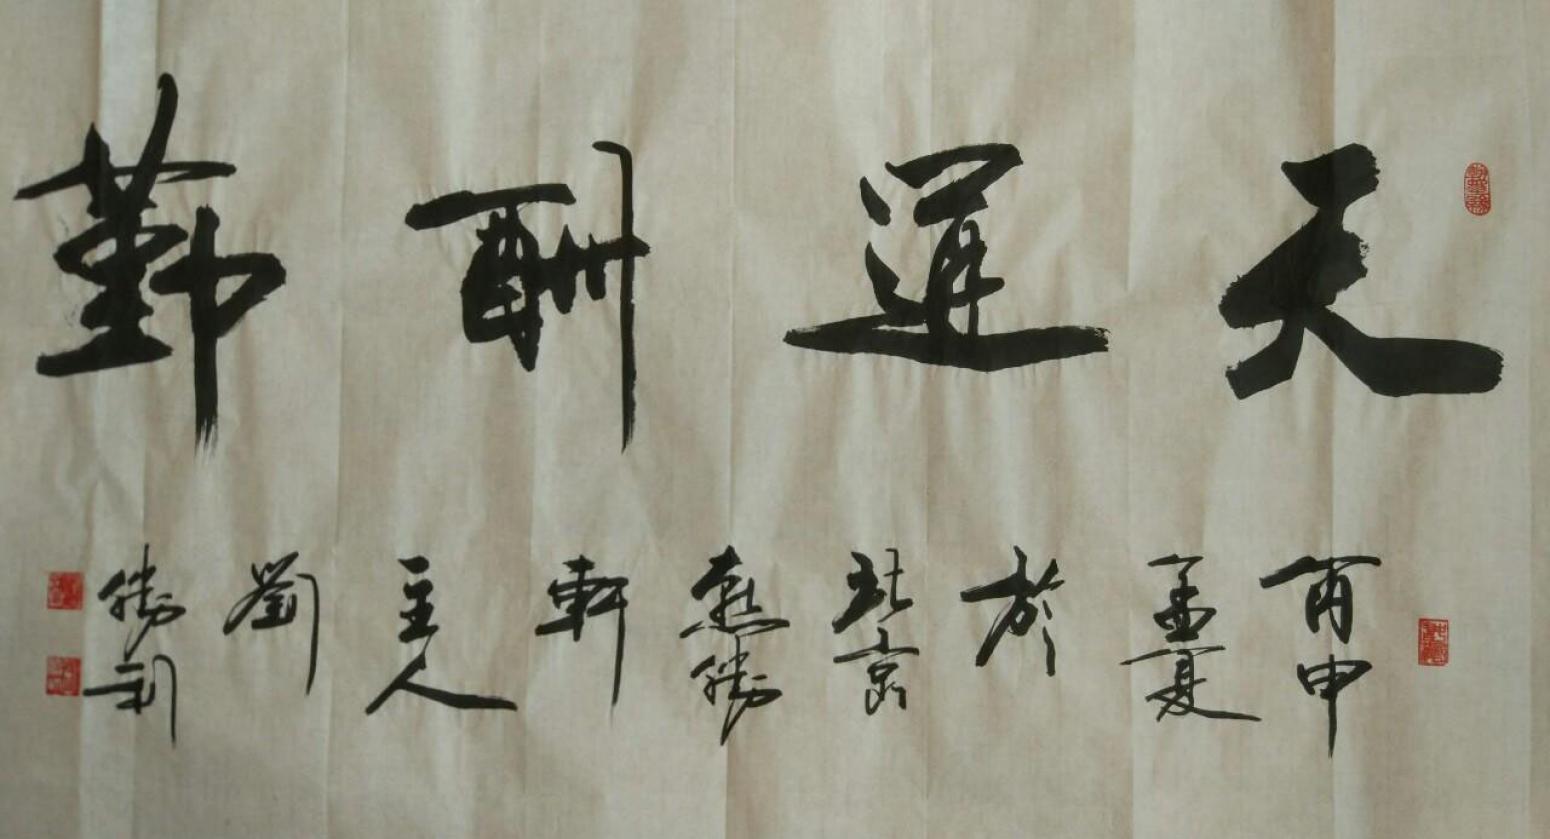 天道酬勤
丙申孟夏於北京勝軒主人劉勝利